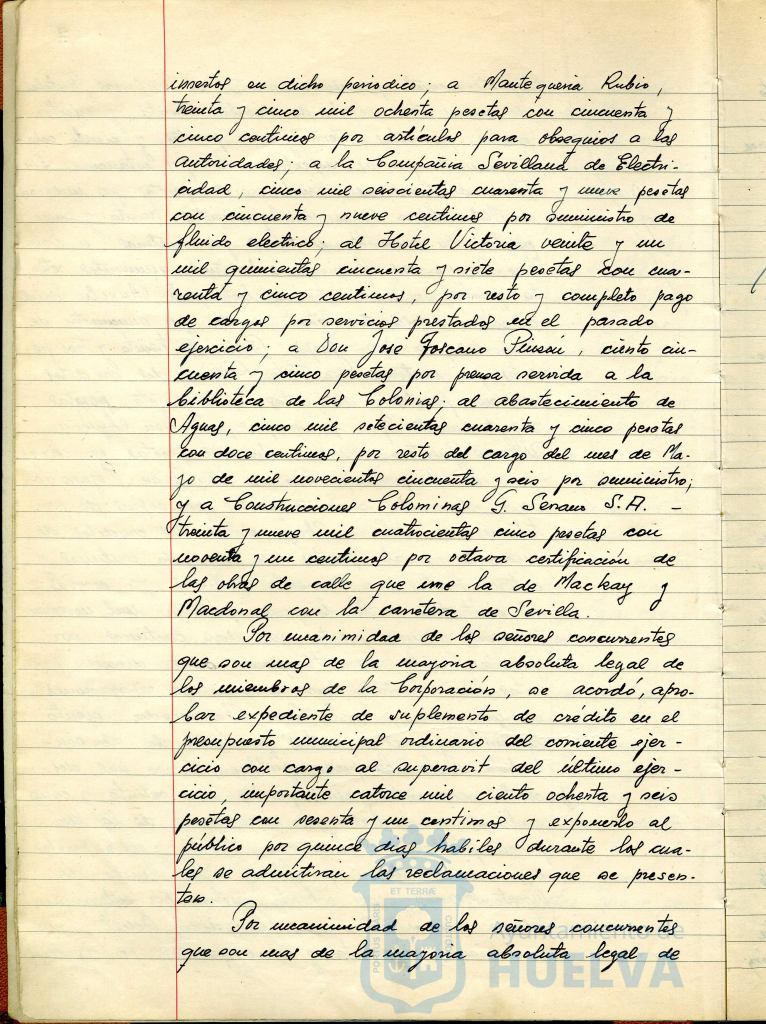 insertos en dicho periodico; a Mantequeria Rubio,
treinta y cinco mil ochenta pesetas con cincuenta y
cinco centimos por artículos para obsequios a las
autoridades; a la Compañia Sevillana de Electri-
cidad, cinco mil seiscientas cuarenta y nueve pesetas
con cincuenta y nueve centimos por suministro de
fluido electrico; al Hotel Victoria veinte y un
mil quinientas cincuenta y siete pesetas con cua-
renta y cinco centimos, por resto y completo pago
de cargos por servicios prestados en el pasado
ejercicio; a Don José Toscano Pinzón, ciento cin-
cuenta y cinco pesetas por prensa servida a la
biblioteca de las Colonias; al abastecimiento de
Aguas, cinco mil setecientas cuarenta y cinco pesetas
con doce centimos, por resto del cargo del mes de Ma-
yo de mil novecientos cincuenta y seis por suministro;
y a Construcciones Colominas G. Serrano S.A. -
treinta y nueve mil cuatrocientas cinco pesetas con
noventa y un centimos por octava certificación de
las obras de calle que une la de Mackay y
Macdonal con la carretera de Sevilla.
Por unanimidad de los señores concurrentes
que son mas de la mayoria absoluta legal de
los miembros de la Corporación, se acordó, apro-
bar expediente de suplemento de crédito en el
presupuesto municipal ordinario del corriente ejer-
cicio con cargo al superavit del último ejer-
cicio, importante catorce mil ciento ochenta y seis
pesetas con sesenta y un centimos y exponerlo al
público por quince dias habiles durante los cua-
les se admitiran las reclamaciones que se presen-
ten.
Por unanimidad de los señores concurrentes
que son mas de la mayoria absoluta legal de
ET TERRÆ
Ayuntamiento de
HUELVA